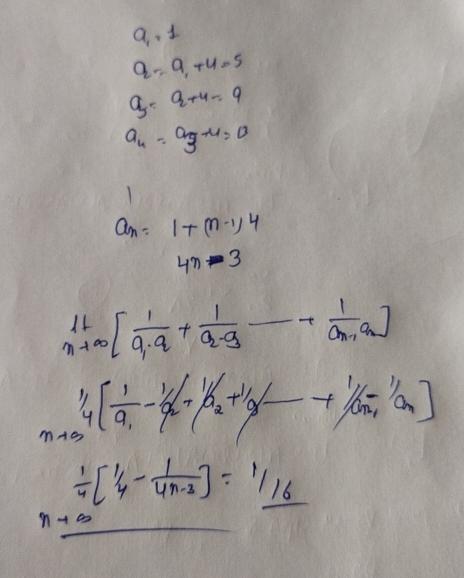 a₁ = 1
a₂ = a₁ + 4 = 5
a₃ = a₂ + 4 = 9
a₄ = a₃ + 4 = 13
1
aₙ = 1 + (n-1) 4
4n - 3
lt n→∞ [ 1/(a₁·a₂) + 1/(a₂·a₃) —— + 1/(aₙ₋₁ aₙ) ]
n→∞ 1/4 [ 1/a₁ - 1/a₂ + 1/a₂ + 1/a₃ —— + 1/aₙ₋₁ 1/aₙ ]
n→∞ 1/4 [ 1/4 - 1/(4n-3) ] = 1/16